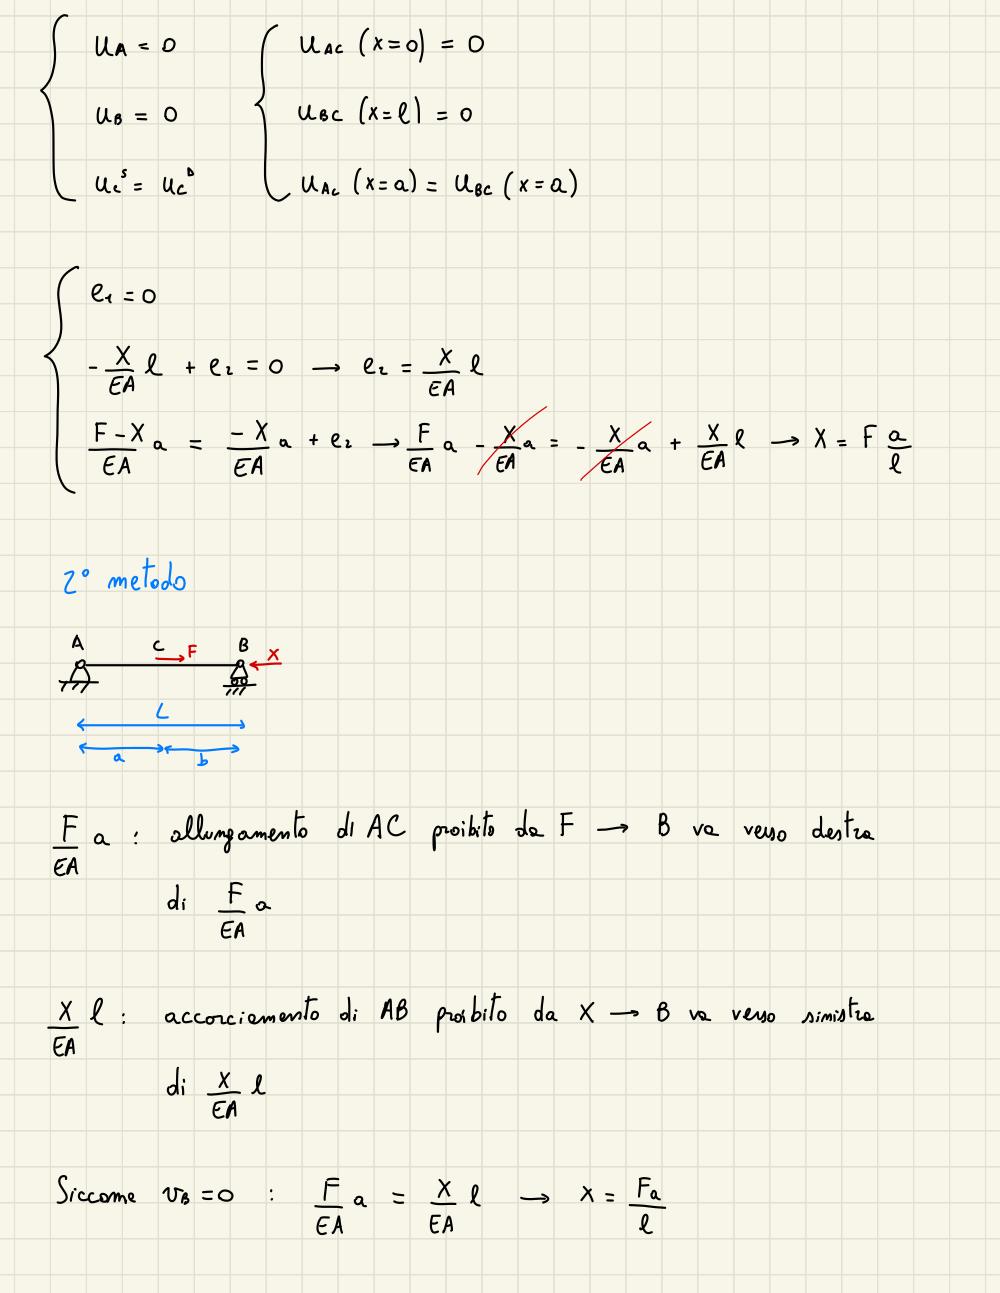 u_A = 0    u_AC (x=0) = 0
u_B = 0    u_BC (x=l) = 0
u_C^S = u_C^D    u_AC (x=a) = u_BC (x=a)
e_1 = 0
- X/EA l + e_2 = 0 → e_2 = X/EA l
F-X/EA a = -X/EA a + e_2 → F/EA a - X/EA a = - X/EA a + X/EA l → X = F a/l
2° metodo
A C F B X
L
a b
F/EA a : allungamento di AC proibito da F → B va verso destra
di F/EA a
X/EA l : accorciamento di AB proibito da X → B va verso sinistra
di X/EA l
Siccome v_B = 0 : F/EA a = X/EA l → X = Fa/l